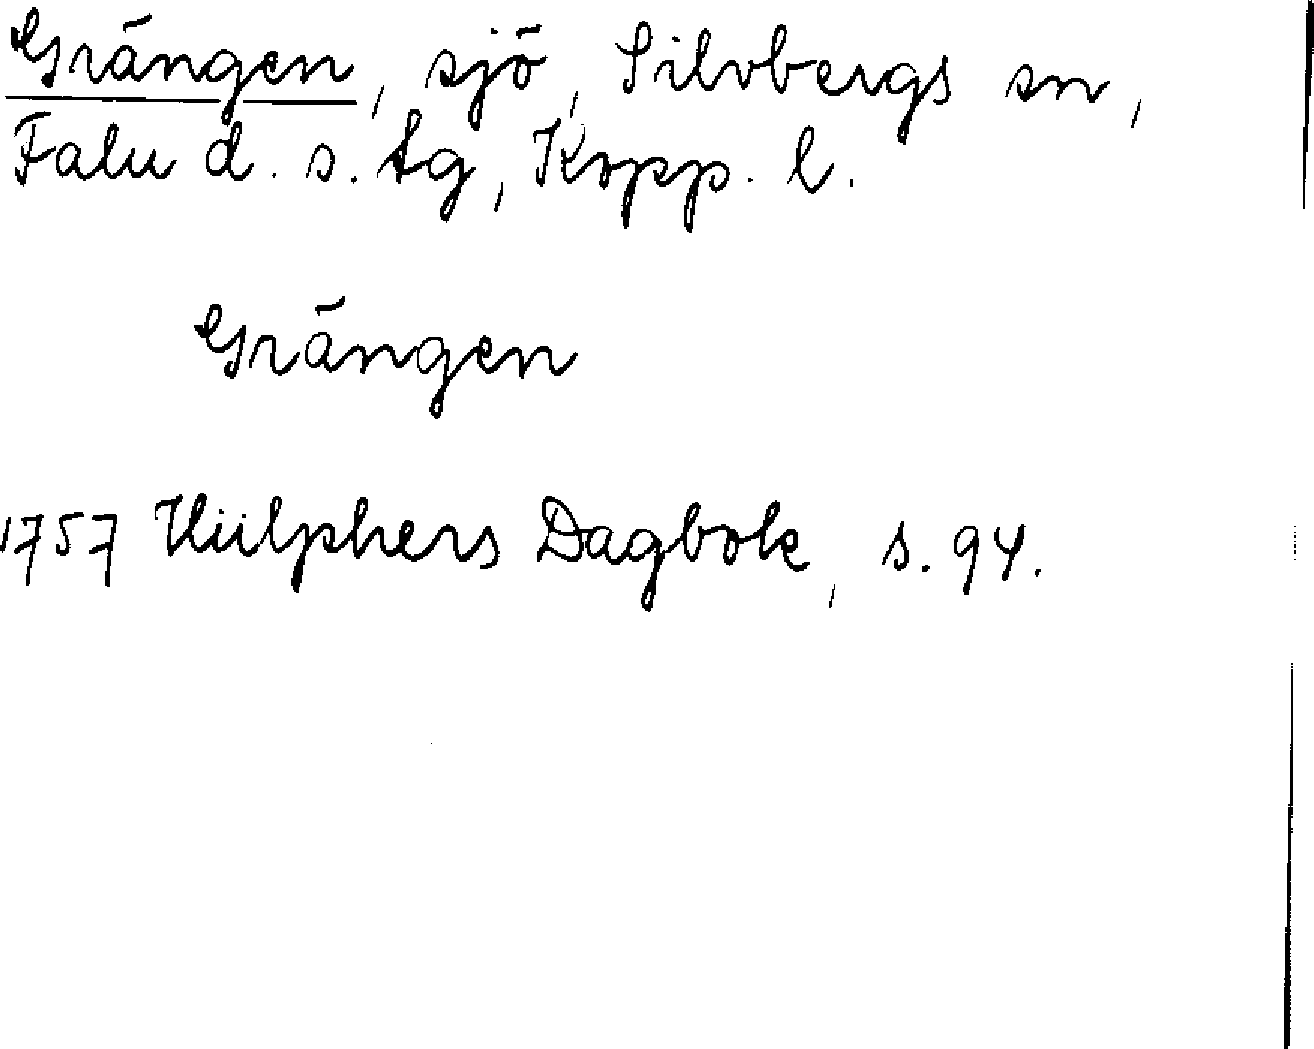 Grängen, sjö, Silvbergs sn,
Falu d. s. tg, Kopp. l.
Grängen
1757 Hülphers Dagbok, s. 94.